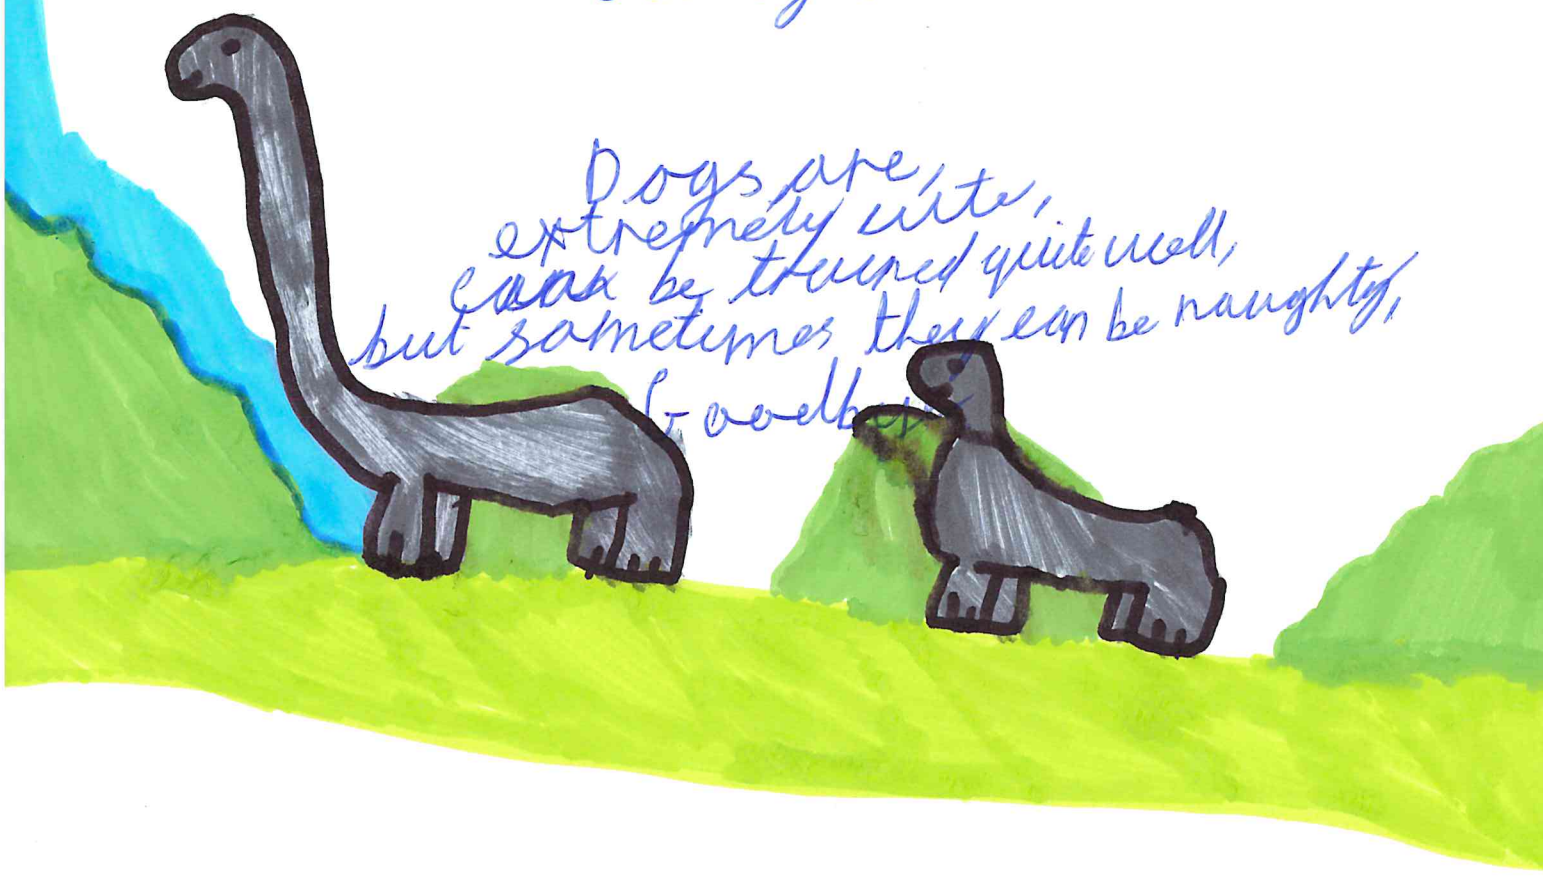 Dogs are,
extremely cute,
can be trained quite well,
but sometimes they can be naughty,
Goodbye